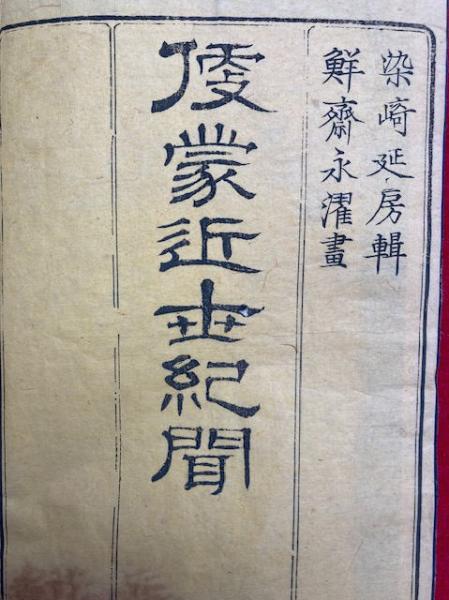 染崎延房輯
鮮齋永濯畫
倭蒙近世紀聞